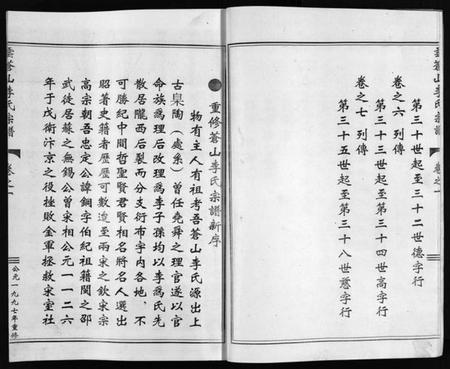 重蒼山李氏宗譜
卷之一
第三十世起至三十二世德字行
卷之六 列傳
第三十三世起至第三十四世高字行
卷之七 列傳
第三十五世起至第三十八世慈字行
重修蒼山李氏宗譜新序
物有主人有祖考吾蒼山李氏源出上
古臯陶（處系）曾任堯舜之理官遂以官
命族為理后改理為李子孫均以李為氏先
散居隴西后裂而分支衍布宇內各地，不
可勝紀中間哲聖賢君賢相名將名人迭出
昭著史籍者歷歷可數逮至兩宋之欽宗宋
高宗朝吾忠定公諱鋼字伯紀祖籍閩之邵
武徒居蘇之無錫公曾宋相公元一一二六
年于戊衛汴京之役極敗金軍拯救宋室社
重蒼山李氏宗譜
卷之一
公元一九九七年重修